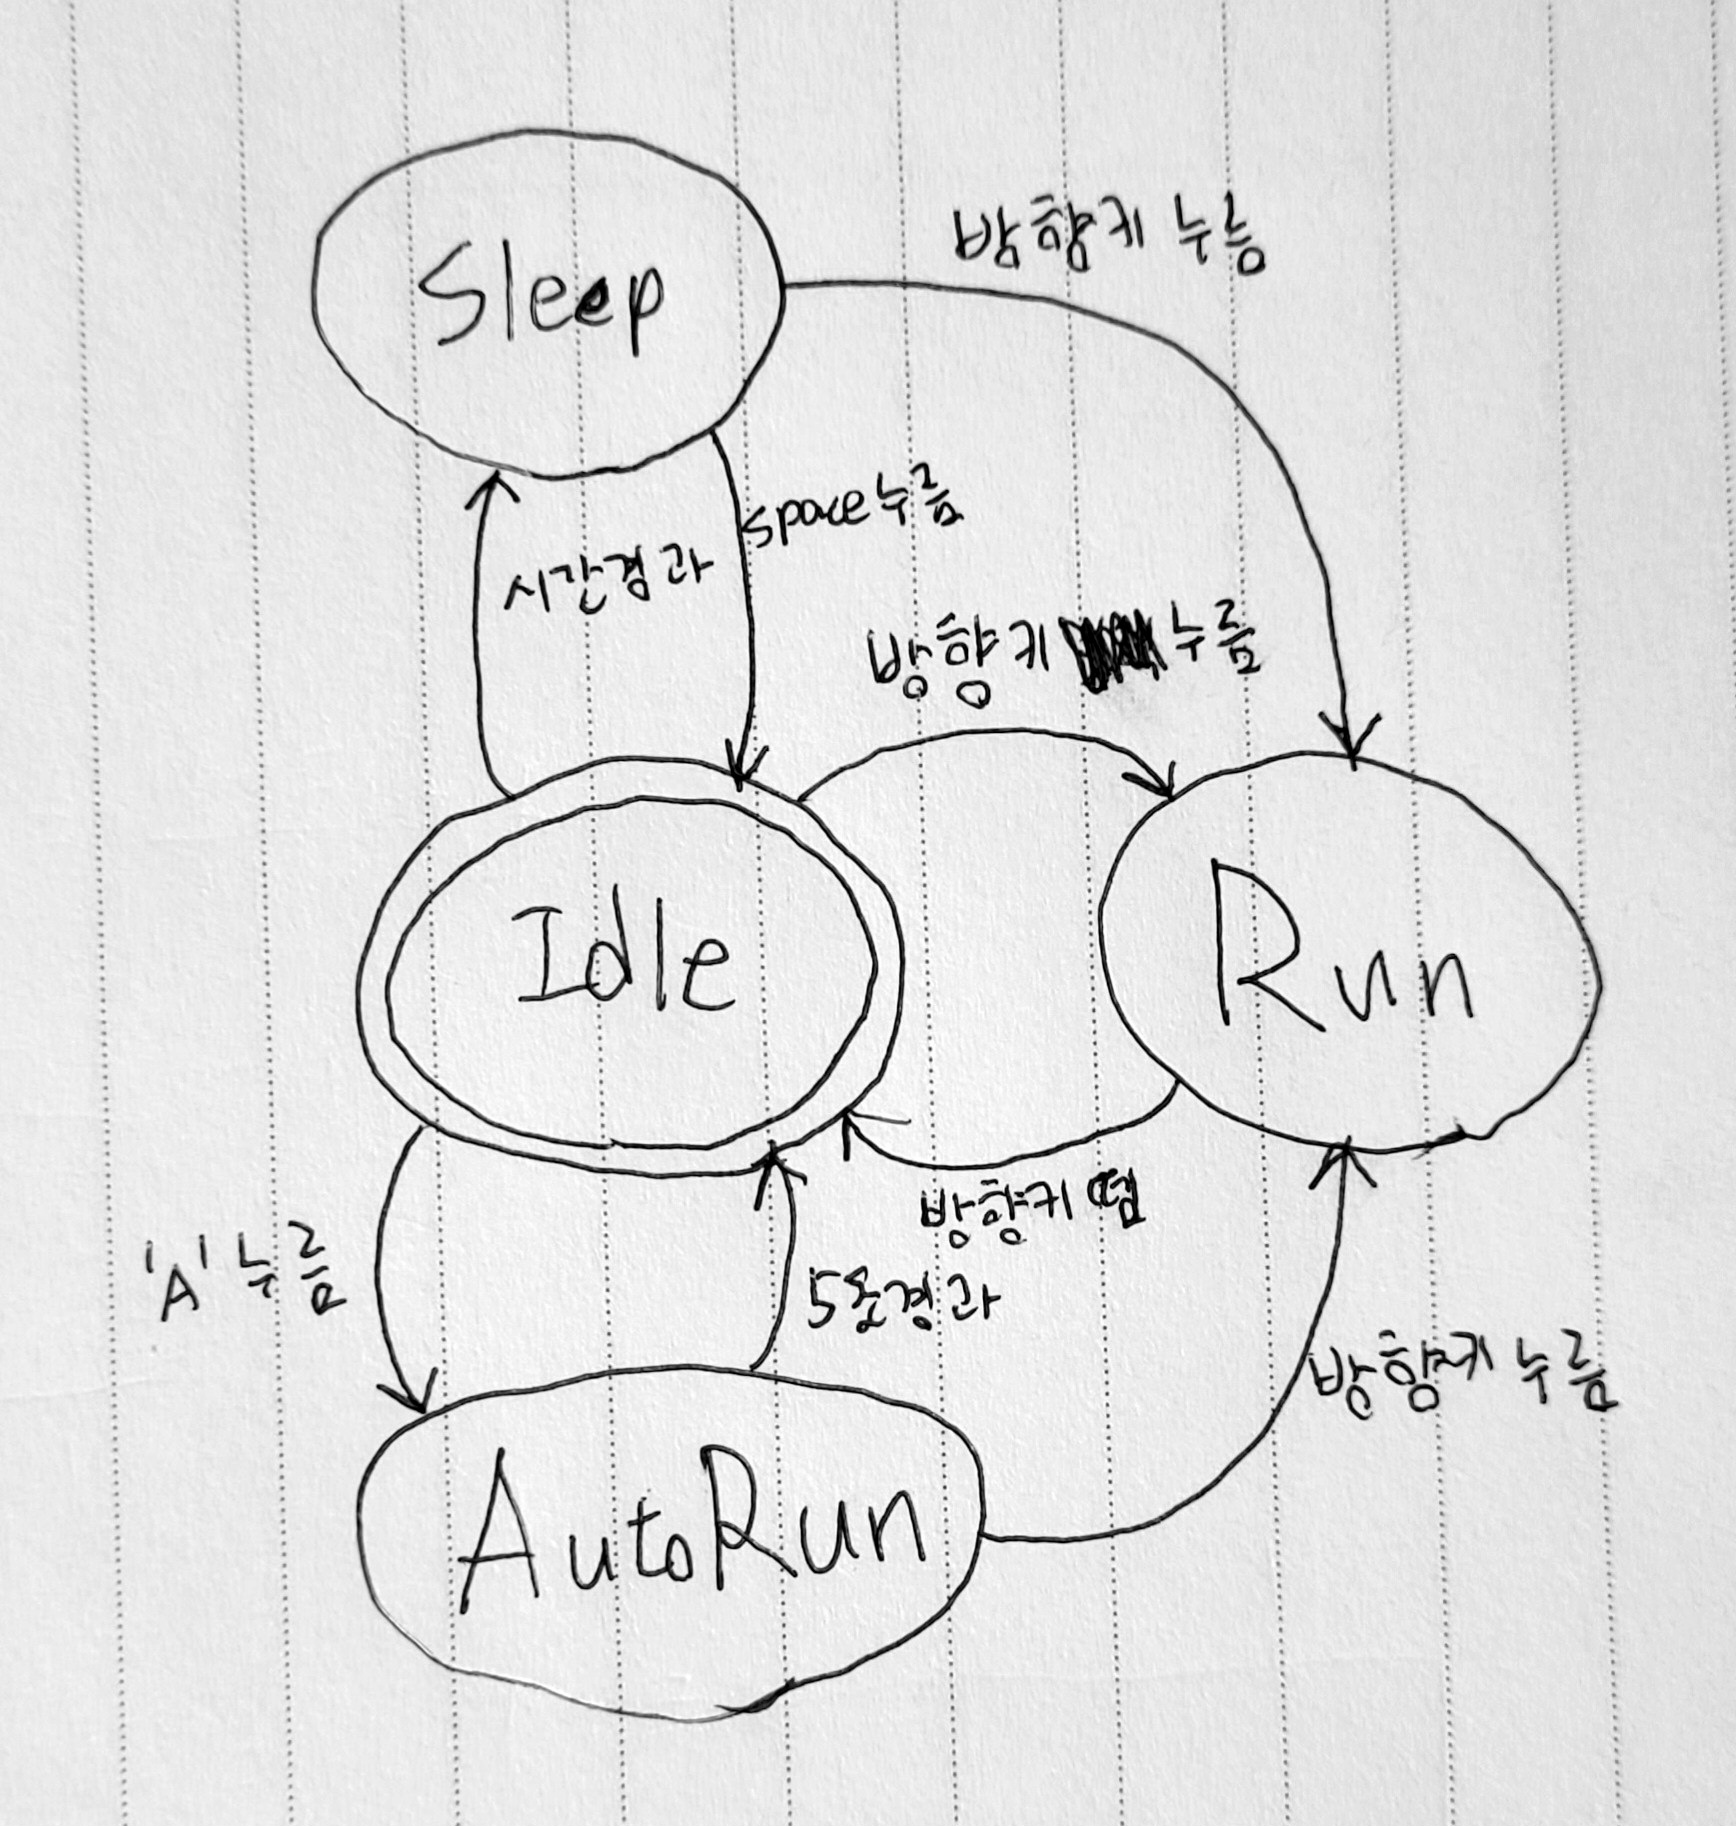 방향키 누름
Sleep
space누름
시간경과
방향키 누름
Idle
Run
방향키 뗌
'A' 누름
5초경과
방향키 누름
AutoRun